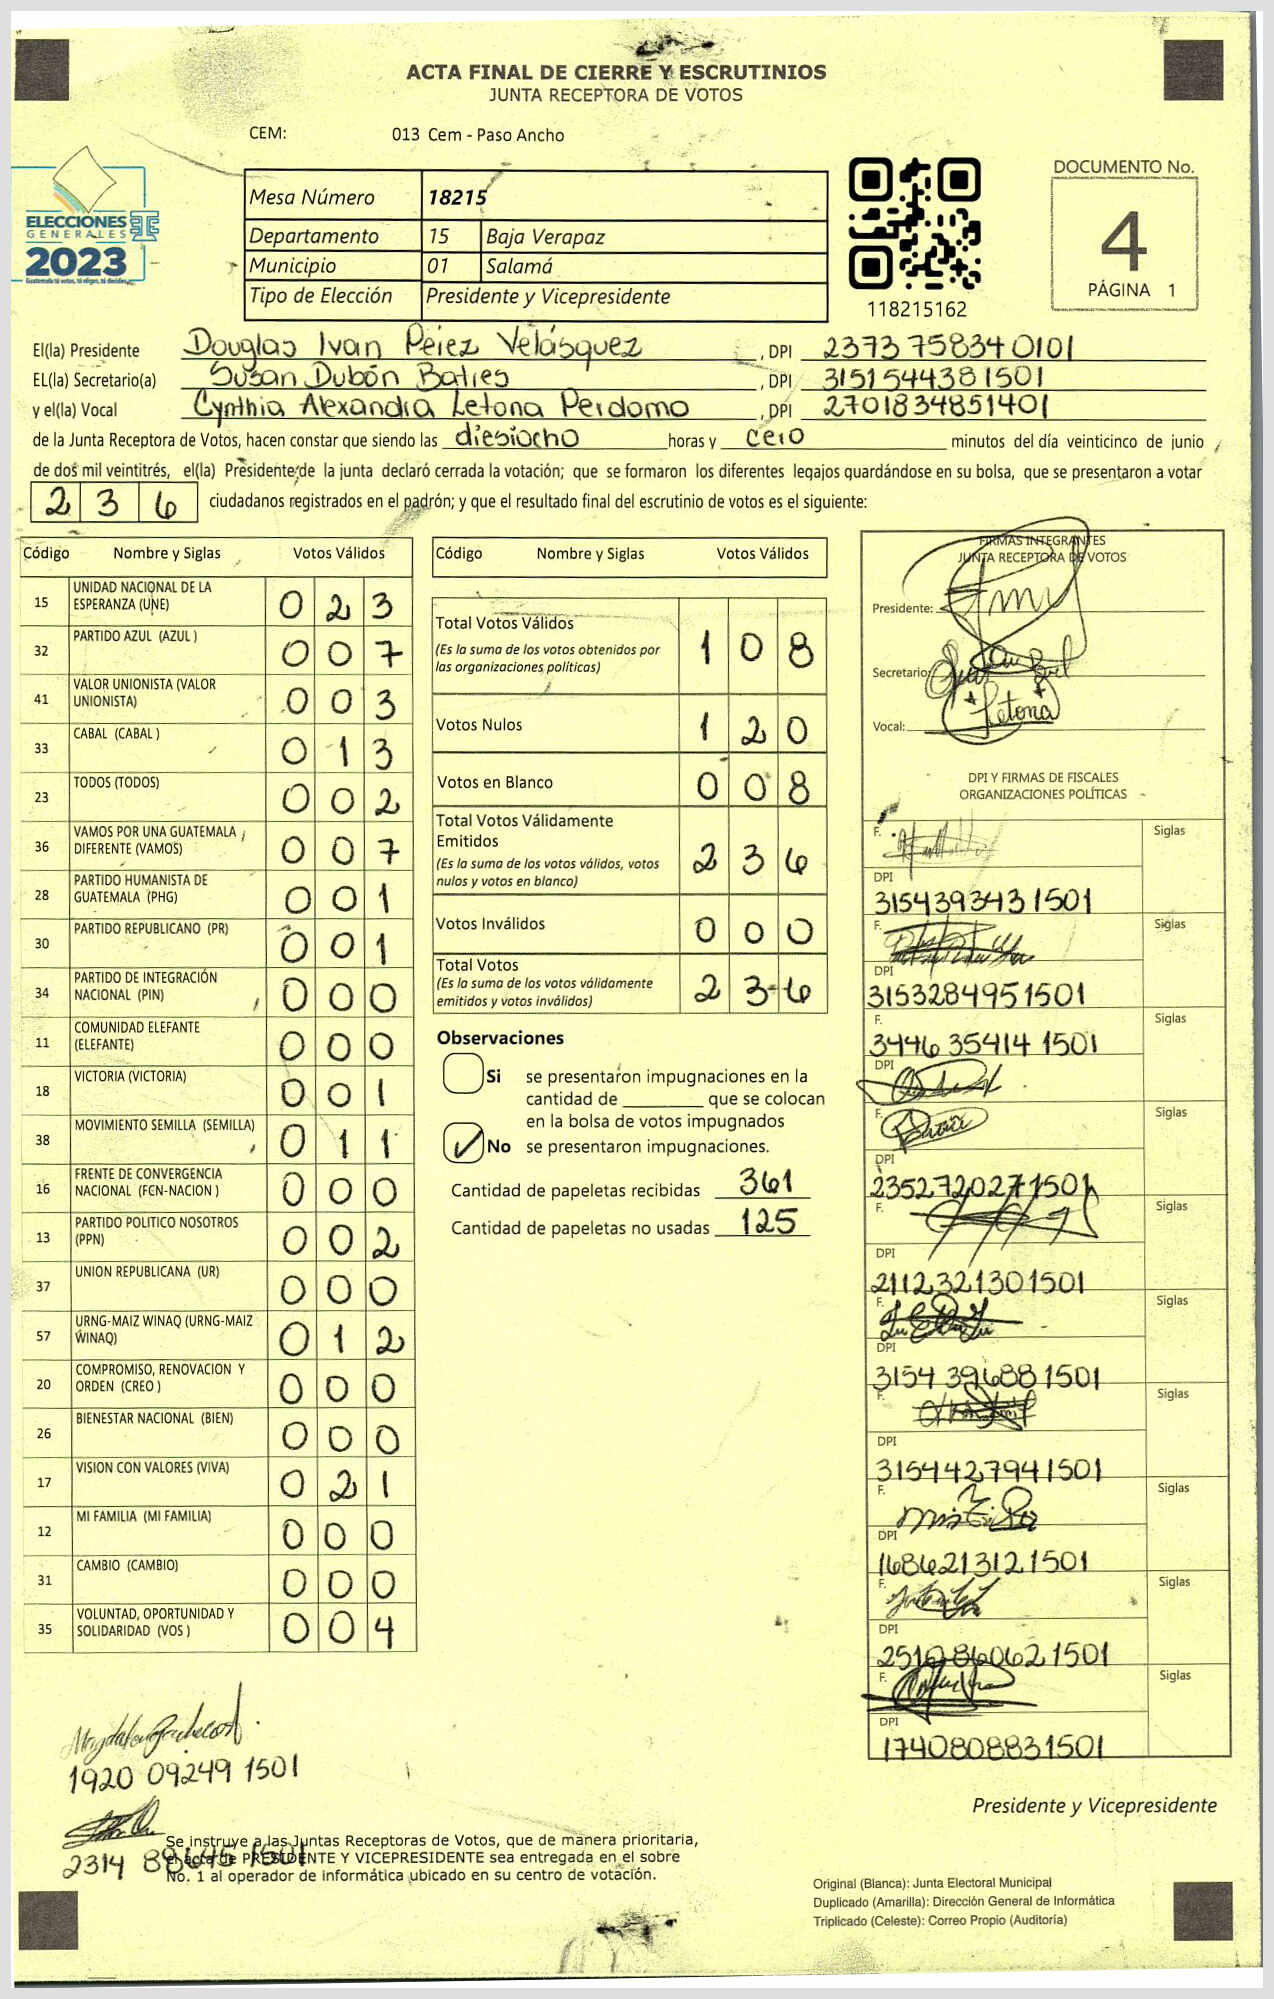 ACTA FINAL DE CIERRE Y ESCRUTINIOS
JUNTA RECEPTORA DE VOTOS
CEM: 013 Cem - Paso Ancho
ELECCIONES
GENERALES
2023
Guatemala tú votas, tú eliges, tú decides
Mesa Número 18215
Departamento 15 Baja Verapaz
Municipio 01 Salamá
Tipo de Elección Presidente y Vicepresidente
118215162
DOCUMENTO No.
4
PÁGINA 1
El(la) Presidente Douglas Ivan Pérez Velásquez , DPI 2373758340101
EL(la) Secretario(a) Susan Dubón Batres , DPI 3151544381501
y el(la) Vocal Cynthia Alexandra Letona Perdomo , DPI 2701834851401
de la Junta Receptora de Votos, hacen constar que siendo las diesiocho horas y cero minutos del día veinticinco de junio
de dos mil veintitrés, el(la) Presidente de la junta declaró cerrada la votación; que se formaron los diferentes legajos guardándose en su bolsa, que se presentaron a votar
236 ciudadanos registrados en el padrón; y que el resultado final del escrutinio de votos es el siguiente:
Código Nombre y Siglas Votos Válidos
15 UNIDAD NACIONAL DE LA ESPERANZA (UNE) 023
32 PARTIDO AZUL (AZUL ) 007
41 VALOR UNIONISTA (VALOR UNIONISTA) 003
33 CABAL (CABAL ) 013
23 TODOS (TODOS) 002
36 VAMOS POR UNA GUATEMALA DIFERENTE (VAMOS) 007
28 PARTIDO HUMANISTA DE GUATEMALA (PHG) 001
30 PARTIDO REPUBLICANO (PR) 001
34 PARTIDO DE INTEGRACIÓN NACIONAL (PIN) 000
11 COMUNIDAD ELEFANTE (ELEFANTE) 000
18 VICTORIA (VICTORIA) 001
38 MOVIMIENTO SEMILLA (SEMILLA) 011
16 FRENTE DE CONVERGENCIA NACIONAL (FCN-NACION ) 000
13 PARTIDO POLITICO NOSOTROS (PPN) 002
37 UNION REPUBLICANA (UR) 000
57 URNG-MAIZ WINAQ (URNG-MAIZ WINAQ) 012
20 COMPROMISO, RENOVACION Y ORDEN (CREO ) 000
26 BIENESTAR NACIONAL (BIEN) 000
17 VISION CON VALORES (VIVA) 021
12 MI FAMILIA (MI FAMILIA) 000
31 CAMBIO (CAMBIO) 000
35 VOLUNTAD, OPORTUNIDAD Y SOLIDARIDAD (VOS ) 004
Código Nombre y Siglas Votos Válidos
Total Votos Válidos 108
(Es la suma de los votos obtenidos por
las organizaciones políticas)
Votos Nulos 120
Votos en Blanco 008
Total Votos Válidamente
Emitidos 236
(Es la suma de los votos válidos, votos
nulos y votos en blanco)
Votos Inválidos 000
Total Votos 236
(Es la suma de los votos válidamente
emitidos y votos inválidos)
Observaciones
Si se presentaron impugnaciones en la
cantidad de ________ que se colocan
en la bolsa de votos impugnados
No se presentaron impugnaciones.
Cantidad de papeletas recibidas 361
Cantidad de papeletas no usadas 125
FIRMAS INTEGRANTES
JUNTA RECEPTORA DE VOTOS
Presidente:
Secretario:
Vocal: Letona
DPI Y FIRMAS DE FISCALES
ORGANIZACIONES POLÍTICAS
F. Siglas
DPI
3154393431501
F. Siglas
DPI
3153284951501
F. Siglas
3446354141501
DPI
F. Siglas
DPI
2352720271501
F. Siglas
DPI
2112321301501
F. Siglas
DPI
3154396881501
F. Siglas
DPI
3154427941501
F. Siglas
DPI
1686213121501
F. Siglas
DPI
2510860621501
F. Siglas
DPI
1740808831501
1920 09249 1501
2314 1501
Se instruye a las Juntas Receptoras de Votos, que de manera prioritaria,
el acta de PRESIDENTE Y VICEPRESIDENTE sea entregada en el sobre
No. 1 al operador de informática ubicado en su centro de votación.
Presidente y Vicepresidente
Original (Blanca): Junta Electoral Municipal
Duplicado (Amarilla): Dirección General de Informática
Triplicado (Celeste): Correo Propio (Auditoría)